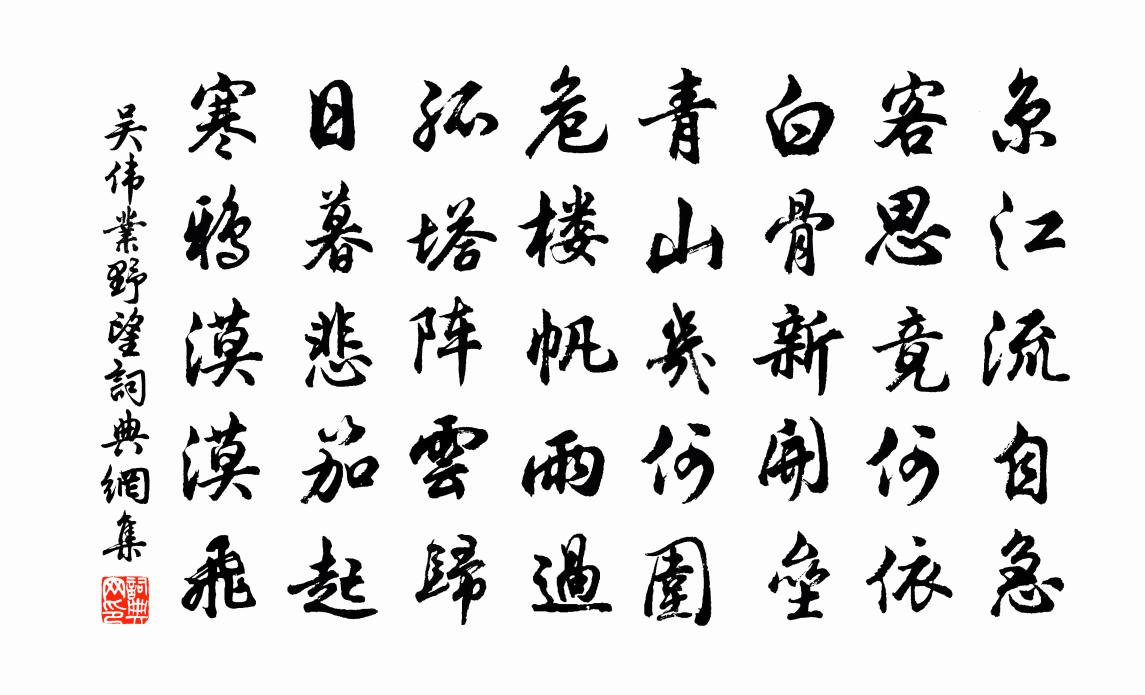 京江流自急
客思竟何依
白骨新開壘
青山幾何圍
危楼帆雨過
孤塔阵雲歸
日暮悲笳起
寒鴉漠漠飛
吴伟業野望詞典網集
詞典網印